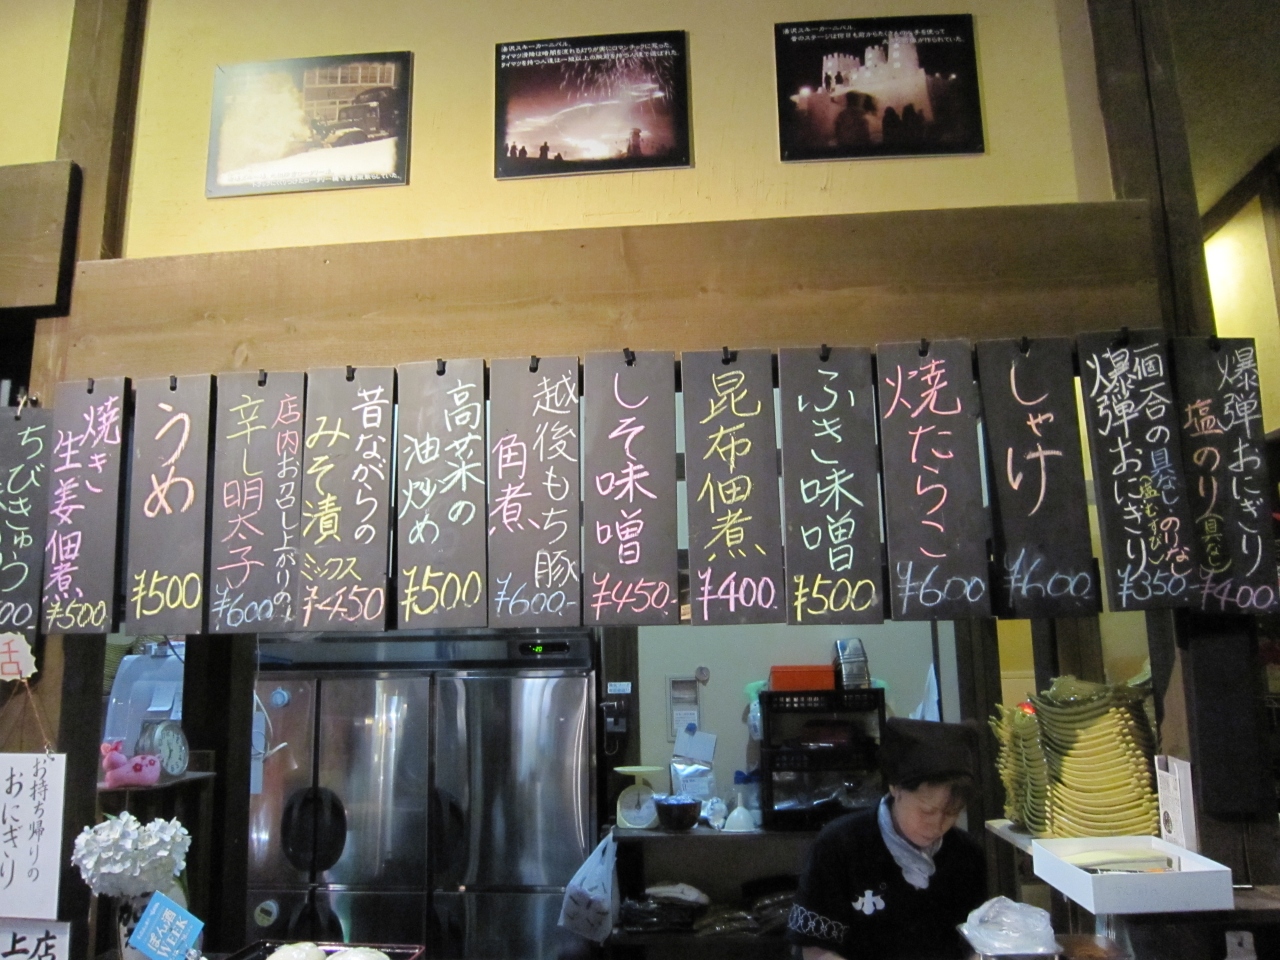 湯沢スキーカーニバル
湯沢スキーカーニバル
爆弾おにぎり
塩のり
(具なし)
¥400
一個一合の具なし、のりなし
(塩むすび)
爆弾おにぎり
¥350-
しゃけ
¥600
焼たらこ
¥600
ふき味噌
¥500
昆布佃煮
¥400
しそ味噌
¥450-
越後もち豚
角煮
¥600-
高菜の
油炒め
¥500
昔ながらの
みそ漬
ミックス
¥450
店内お召し上がりのみ
辛し明太子
¥600
うめ
¥500
焼き
生姜佃煮
¥500
ちびきゅう
00-
舌
お持ち帰りの
おにぎり
ぽん酒
WEEK
上店